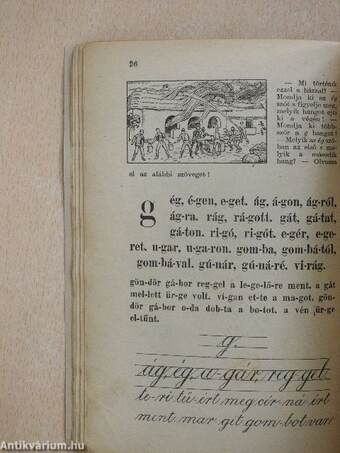 26
— Mi történik
ezzel a házzal? —
Mondja ki az ég
szót s figyelje meg,
melyik hangot ejti
ki a végén! —
Mondja ki több-
ször a g hangot!
Melyik az ég szó-
ban az első s me-
lyik a második
hang? — Olvassa
el az alábbi szöveget!
g ég, é-gen, e-get. ág, á-gon, ág-ról,
ág-ra. rág, rá-gott. gát, gá-tat,
gá-ton. ri-gó, ri-gót. e-gér, e-ge-
ret. u-gar, u-ga-ron. gom-ba, gom-bá-tól,
gom-bá-val. gú-nár, gú-ná-ré. vi-rág.
gön-dör gá-bor reg-gel a le-ge-lő-re ment. a gát
mel-lett ür-ge volt. ví-gan et-te a ma-got. gön-
dör gá-bor o-da dob-ta a bo-tot. a vén ür-ge
el-tünt.
g.
ág, ég, u-gár, reg-gel
te-ri tű-ért meg cér-ná-ért
ment. mar-git gom-bot varr
Antikvárium.hu